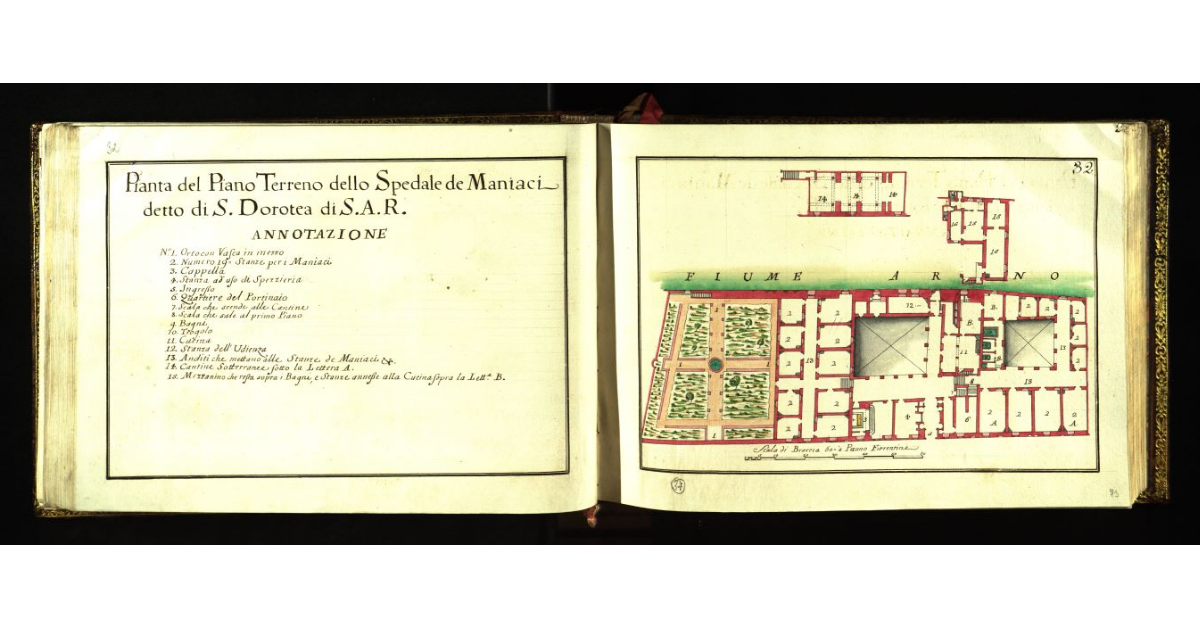 32
Pianta del Piano Terreno dello Spedale de Maniaci
detto di S. Dorotea di S.A.R.
ANNOTAZIONE
N.º 1. Orto con Vasca in mezzo
2. Numero 19. Stanze per i Maniaci
3. Cappella
4. Stanza ad uso di Spezieria
5. Ingresso
6. Quartiere del Portinaio
7. Scala che scende alle Cantine
8. Scala che sale al primo Piano
9. Bagni
10. Trogolo
11. Cucina
12. Stanza dell'Udienza
13. Anditi che mettano alle Stanze de Maniaci &c.
14. Cantine Sotterranee sotto la Lettera A.
15. Mezzanino che resta sopra i Bagni, e Stanze annesse alla Cucina sopra la Lett.ª B.
32
14 14 14
15
15 15
15
FIUME ARNO
1
2 2 12 B. B. 2 2
2 2 2
1 1 13 2 2 11 13
2 2 8 13
2 2 3 4 6 2 2 2 2
1 2 2 5 A A
Scala di Braccia 80 a Panno Fiorentine
27